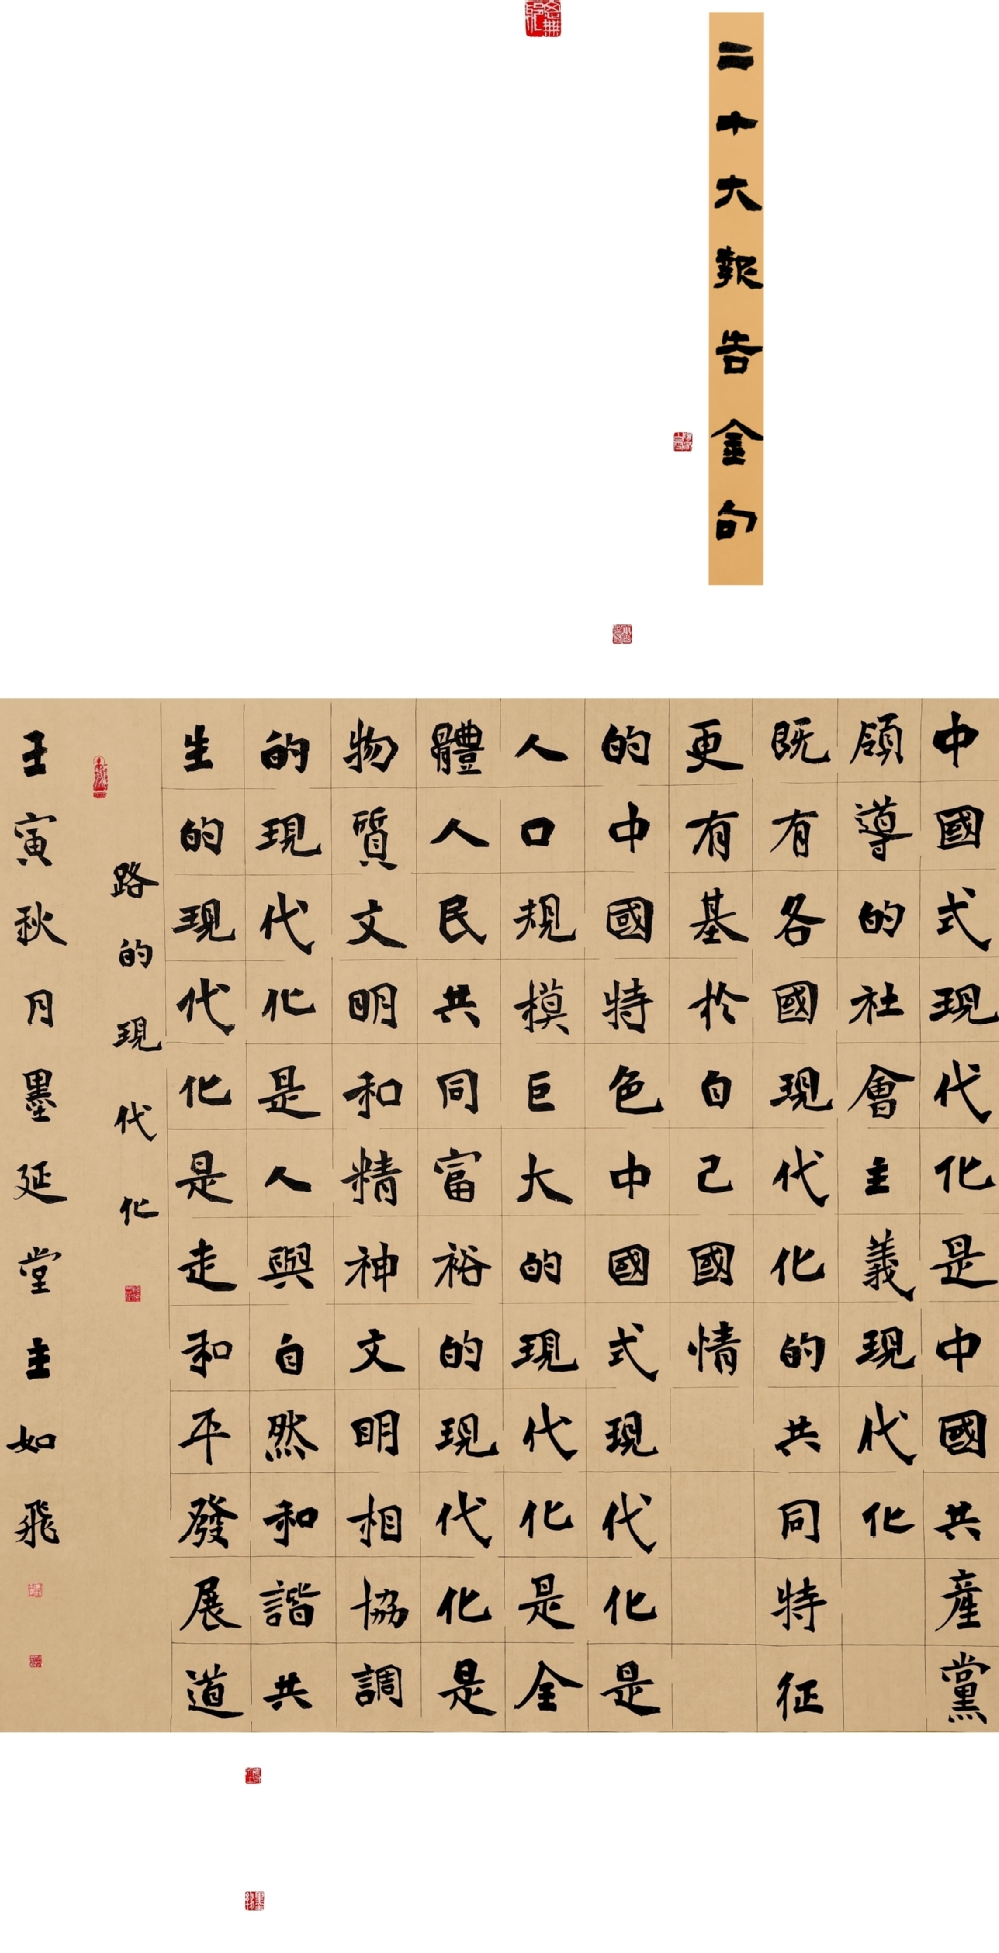 二十大報告金句
中國式現代化是中國共產黨
領導的社會主義現代化
既有各國現代化的共同特征
更有基於自己國情
的中國特色中國式現代化是
人口規模巨大的現代化是全
體人民共同富裕的現代化是
物質文明和精神文明相協調
的現代化是人與自然和諧共
生的現代化是走和平發展道
路的現代化
壬寅秋月墨延堂主如飛